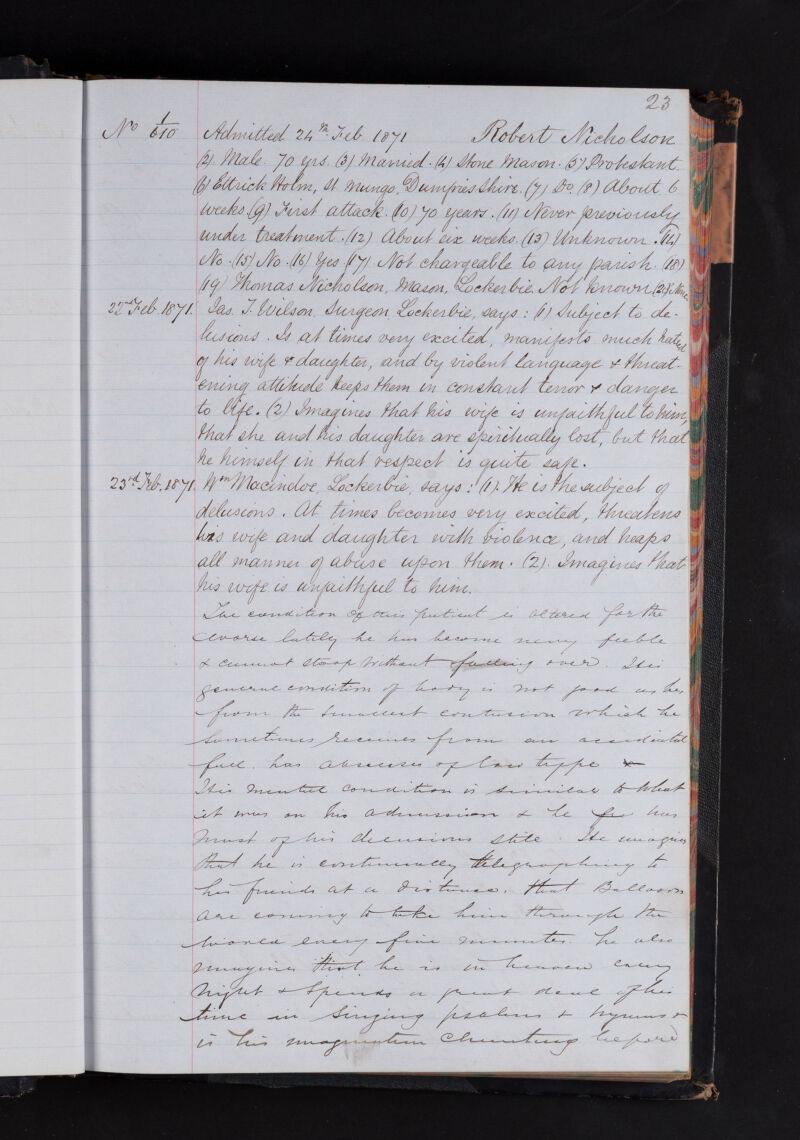 23
No 1/610 Admitted 24th Feb 1871 Robert Nicholson
(2) Male. 70 yrs. (3) Married. (4) Stone Mason. (5) Protestant.
(6) Ettrick Holm, St. Mungo, Dumfries Shire. (7) Do. (8) About 6
weeks. (9) First attack. (10) 70 years. (11) Never previously
under treatment. (12) About six weeks. (13) Unknown. (14)
No. (15) No. (16) Yes (17) Not chargeable to any parish. (18)
(19) Thomas Nicholson, Mason, Lockerbie. Not known
22nd Feb. 1871. Jas. T. Wilson, Surgeon, Lockerbie, says: (1) Subject to de-
lusions. Is at times very excited, manifests much hatred
of his wife & daughter, and by violent language & threat-
ening attitude keeps them in constant terror & danger
to life. (2) Imagines that his wife is unfaithful to him,
that she and his daughter are spiritually lost, but that
he himself in that respect is quite safe.
23rd Feb. 1871. Wm Macindoe, Lockerbie, says: (1). He is the subject of
delusions. At times becomes very excited, threatens
his wife and daughter with violence, and heaps
all manner of abuse upon them. (2). Imagines that
his wife is unfaithful to him.
The condition of this patient is altered for the
worse lately he has become very feeble
& cannot stoop without falling over. His
general condition of body is not good as he
from the smallest contusion which he
sometimes receives from an accidental
fall. has abscesses of low type
His mental condition is similar to what
it was on his admission & he has
most of his delusions still. He imagines
that he is continually telegraphing to
his friends at a distance. that Balloons
are coming to take him through the
world every five minutes. he also
imagines that he is in heaven every
night & spends a great deal of his
time in singing psalms & hymns &
is his imagination chanting before